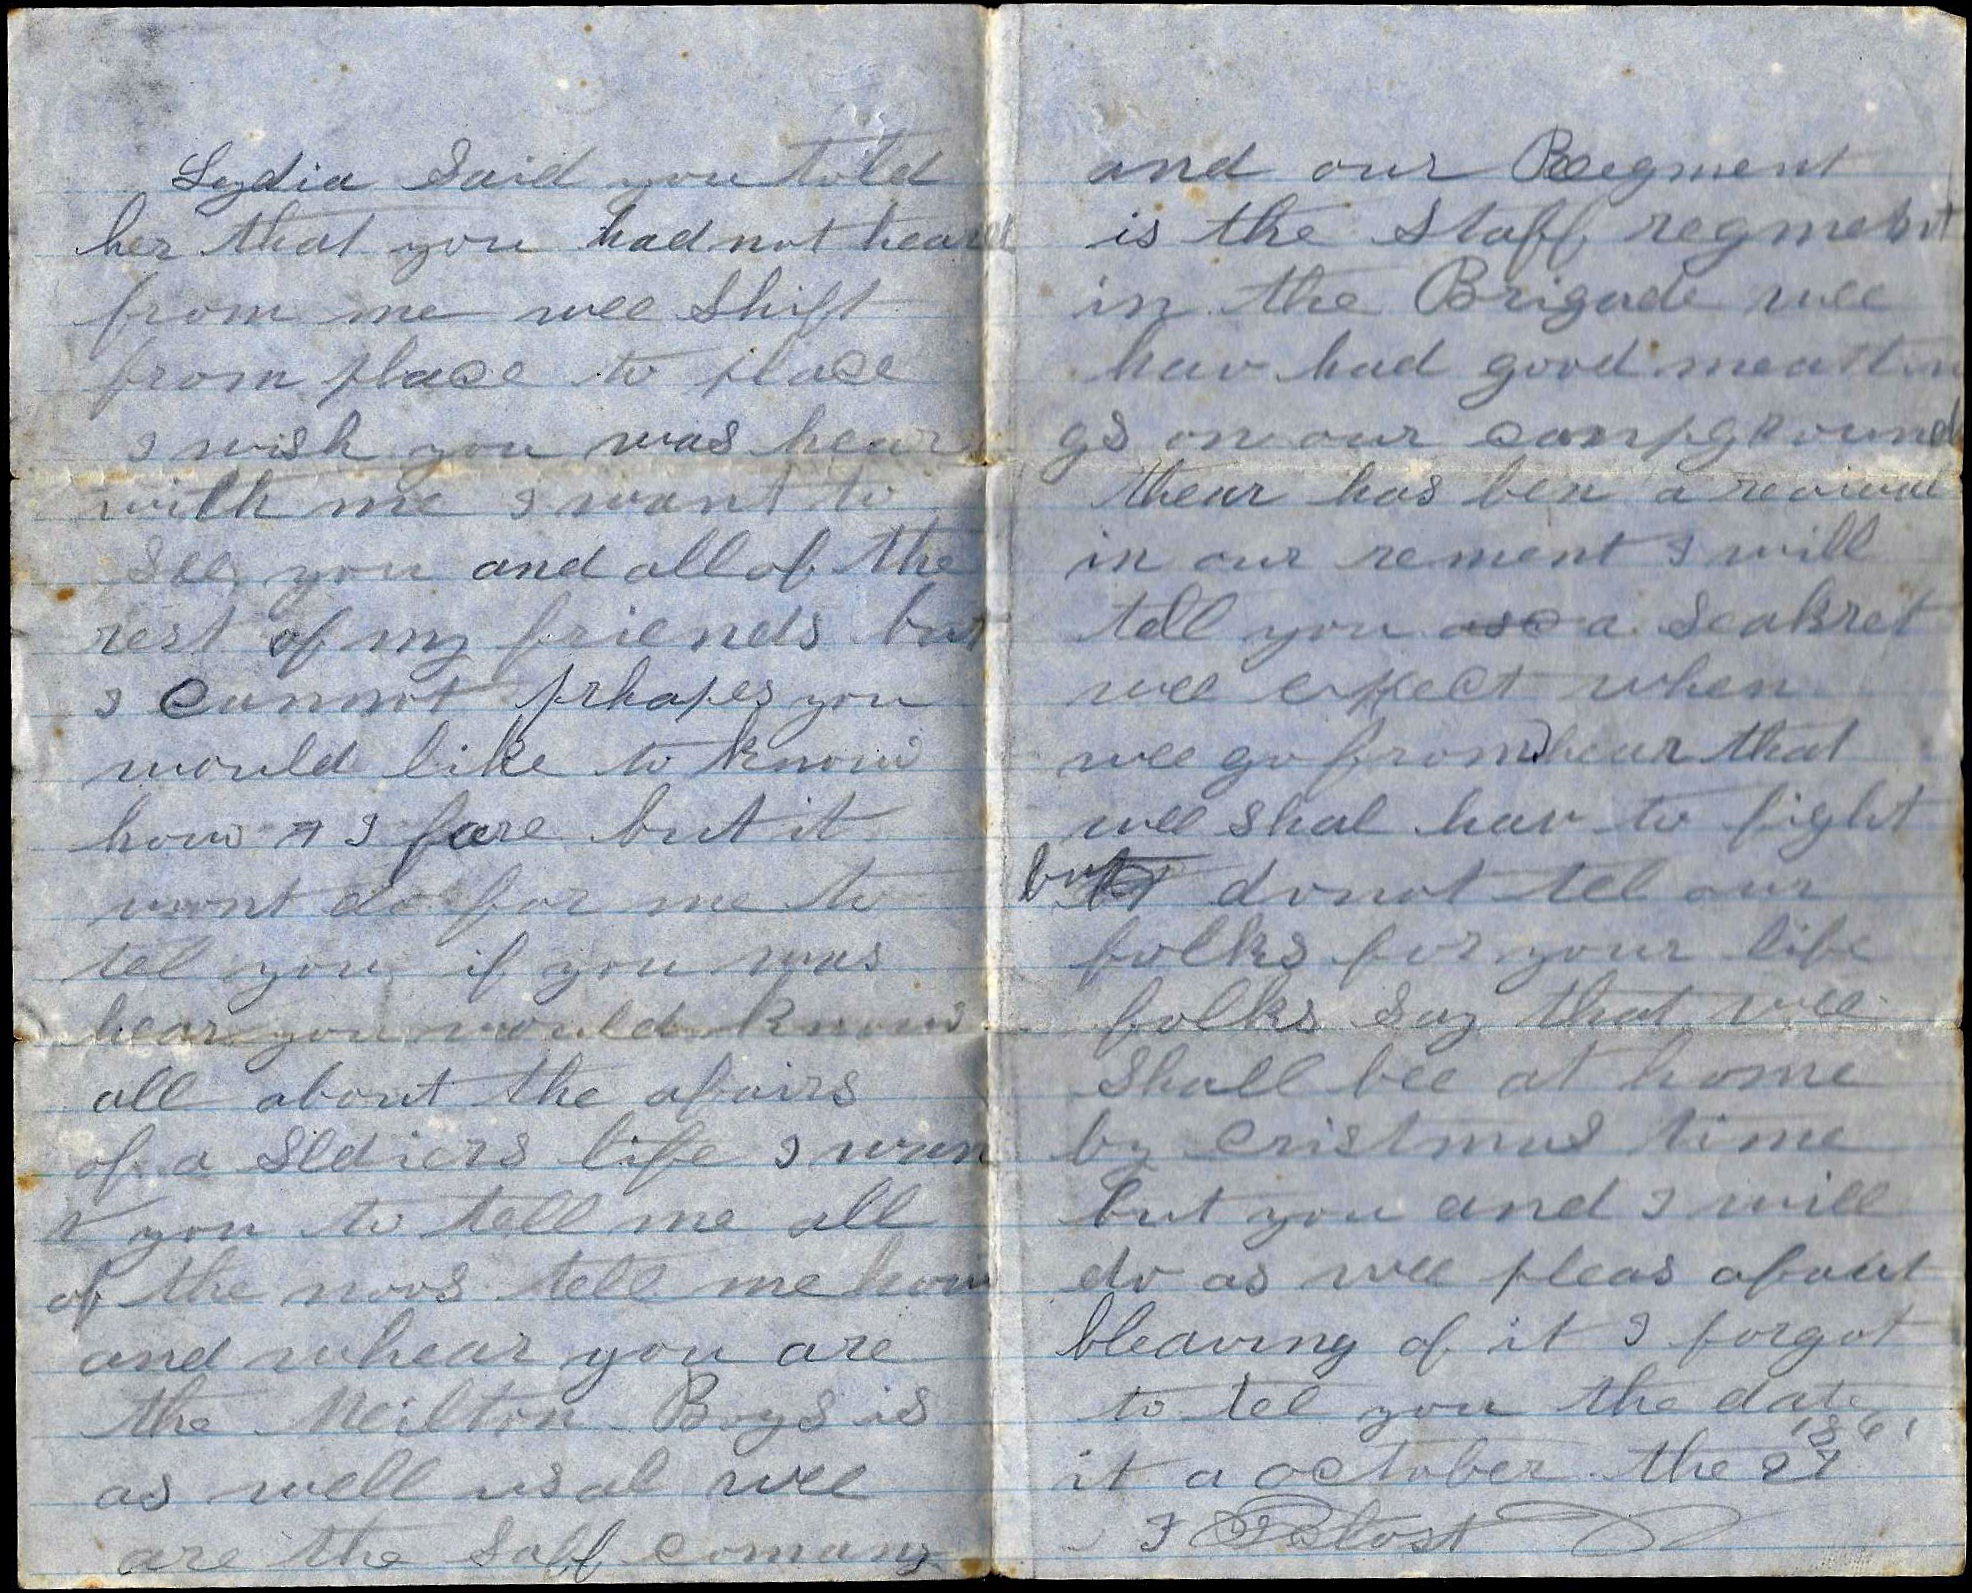 Lydia Said you told
her that you had not heard
from me wee Shift
from place to place
I wish you was hear
with me I want to
See you and all of the
rest of my friends but
I cannot prhapes you
would like to know
how I fare but it
wont do for me to
tel you if you was
hear you would know
all about the afairs
of a Sldiers life I wan
t you to tell me all
of the noos tell me how
and whear you are
the Meilton Boys is
as well usal wee
are the Saff Comany
and our Reegment
is the Staff regment
in the Brigade wee
hav had good meattin
gs on our campground
thear has ben a revival
in our rement I will
tell you a Seakret
wee expect when
wee go from hear that
wee Shal hav to fight
but do not tel our
folks for your life
folks Say that wee
Shall bee at home
by Cristmas time
but you and I will
do as wee pleas about
bleaving of it I forgot
to tel you the date
1861
it a october the 27